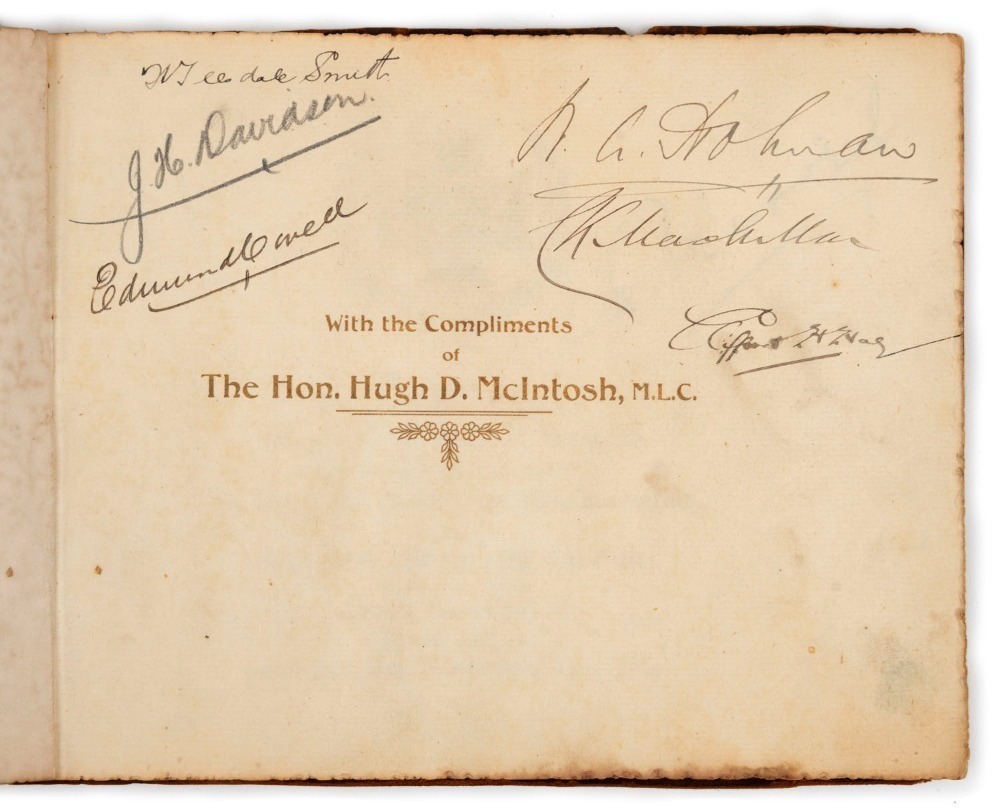 W Teesdale Smith
J. H. Davidson.
Edmund Covell
W. A. Holman
C K Mackellar
Clifford H Hay
With the Compliments
of
The Hon. Hugh D. McIntosh, M.L.C.